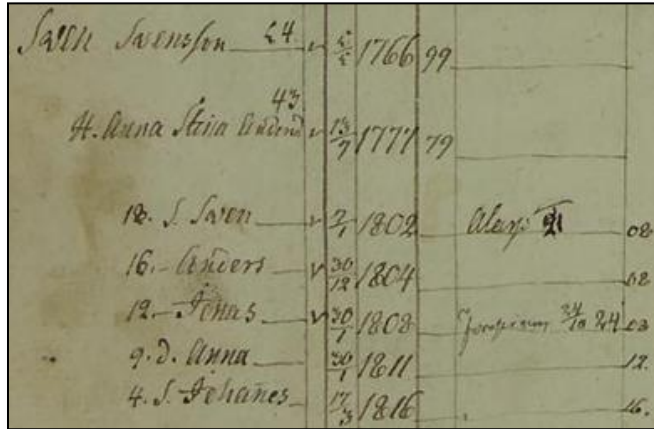 Swen Svensson 54. v 5/5 1766 99
43
H. Anna Stina Anders d v 13/7 1777 79
18. S. Swen v 2/1 1802 21 08
16. - Anders v 30/12 1804 08
12. - Jonas v 30/1 1808 24/10 24 03
9. D. Anna 30/1 1811 12.
4. S. Johanes 17/3 1816 16.